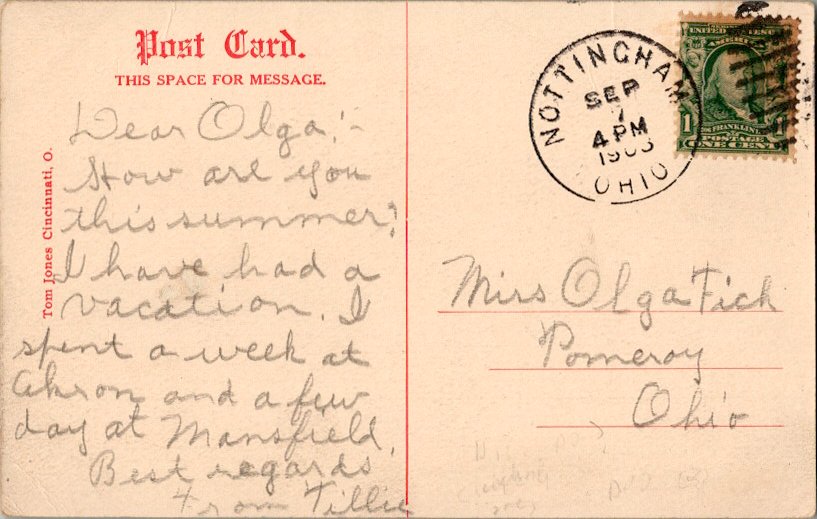 Post Card.
THIS SPACE FOR MESSAGE.
Tom Jones Cincinnati, O.
Dear Olga:-
How are you
this summer?
I have had a
vacation. I
spent a week at
Akron and a few
day at Mansfield.
Best regards
From Tillie
NOTTINGHAM
SEP
7
4 PM
OHIO
UNITED STATES
AMERICA
FRANKLIN
POSTAGE
ONE CENT
1
Miss Olga Fick
Pomeroy
Ohio